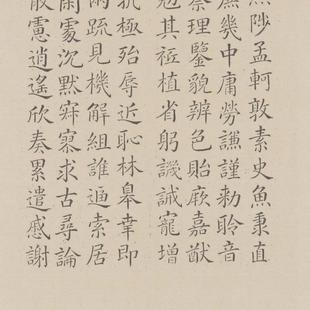 陟孟軻敦素史魚秉直
庶幾中庸勞謙謹勑聆音
察理鑒貌辨色貽厥嘉猷
勉其祗植省躬譏誡寵增
抗極殆辱近恥林皐幸即
兩疏見機解組誰逼索居
閑處沉默寂寥求古尋論
散慮逍遙欣奏累遣慼謝